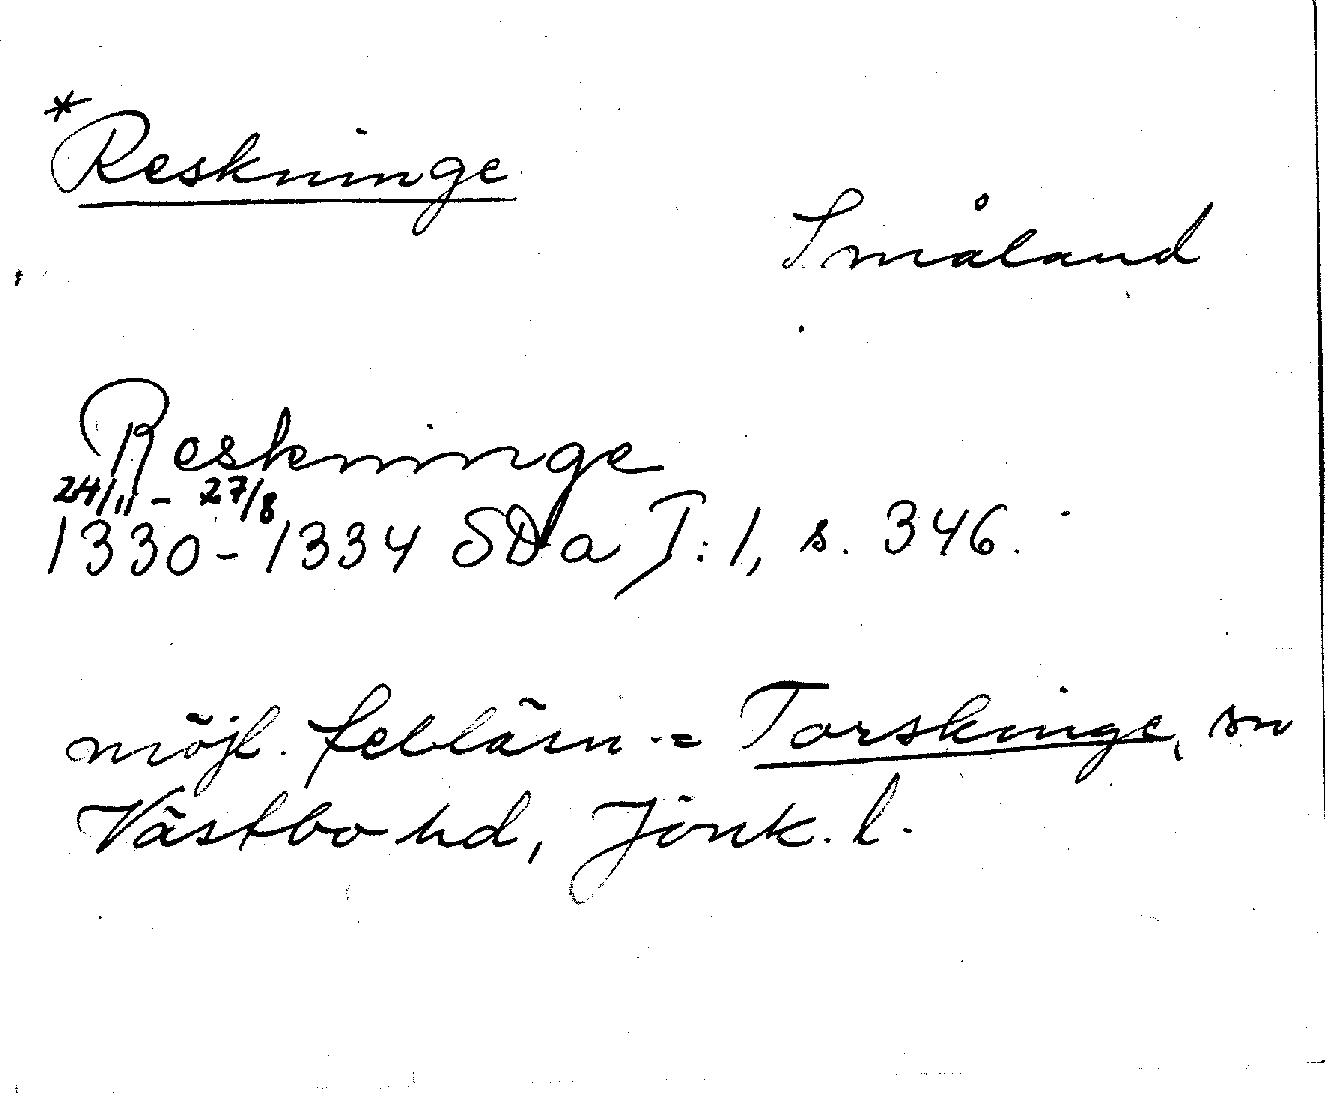 *Reskninge
Småland
Reskninge
24/11 - 27/8
1330-1334 SD a I:1, s. 346.
möjl. felläsn. = Torskinge, sn
Västbo hd, Jönk. l.